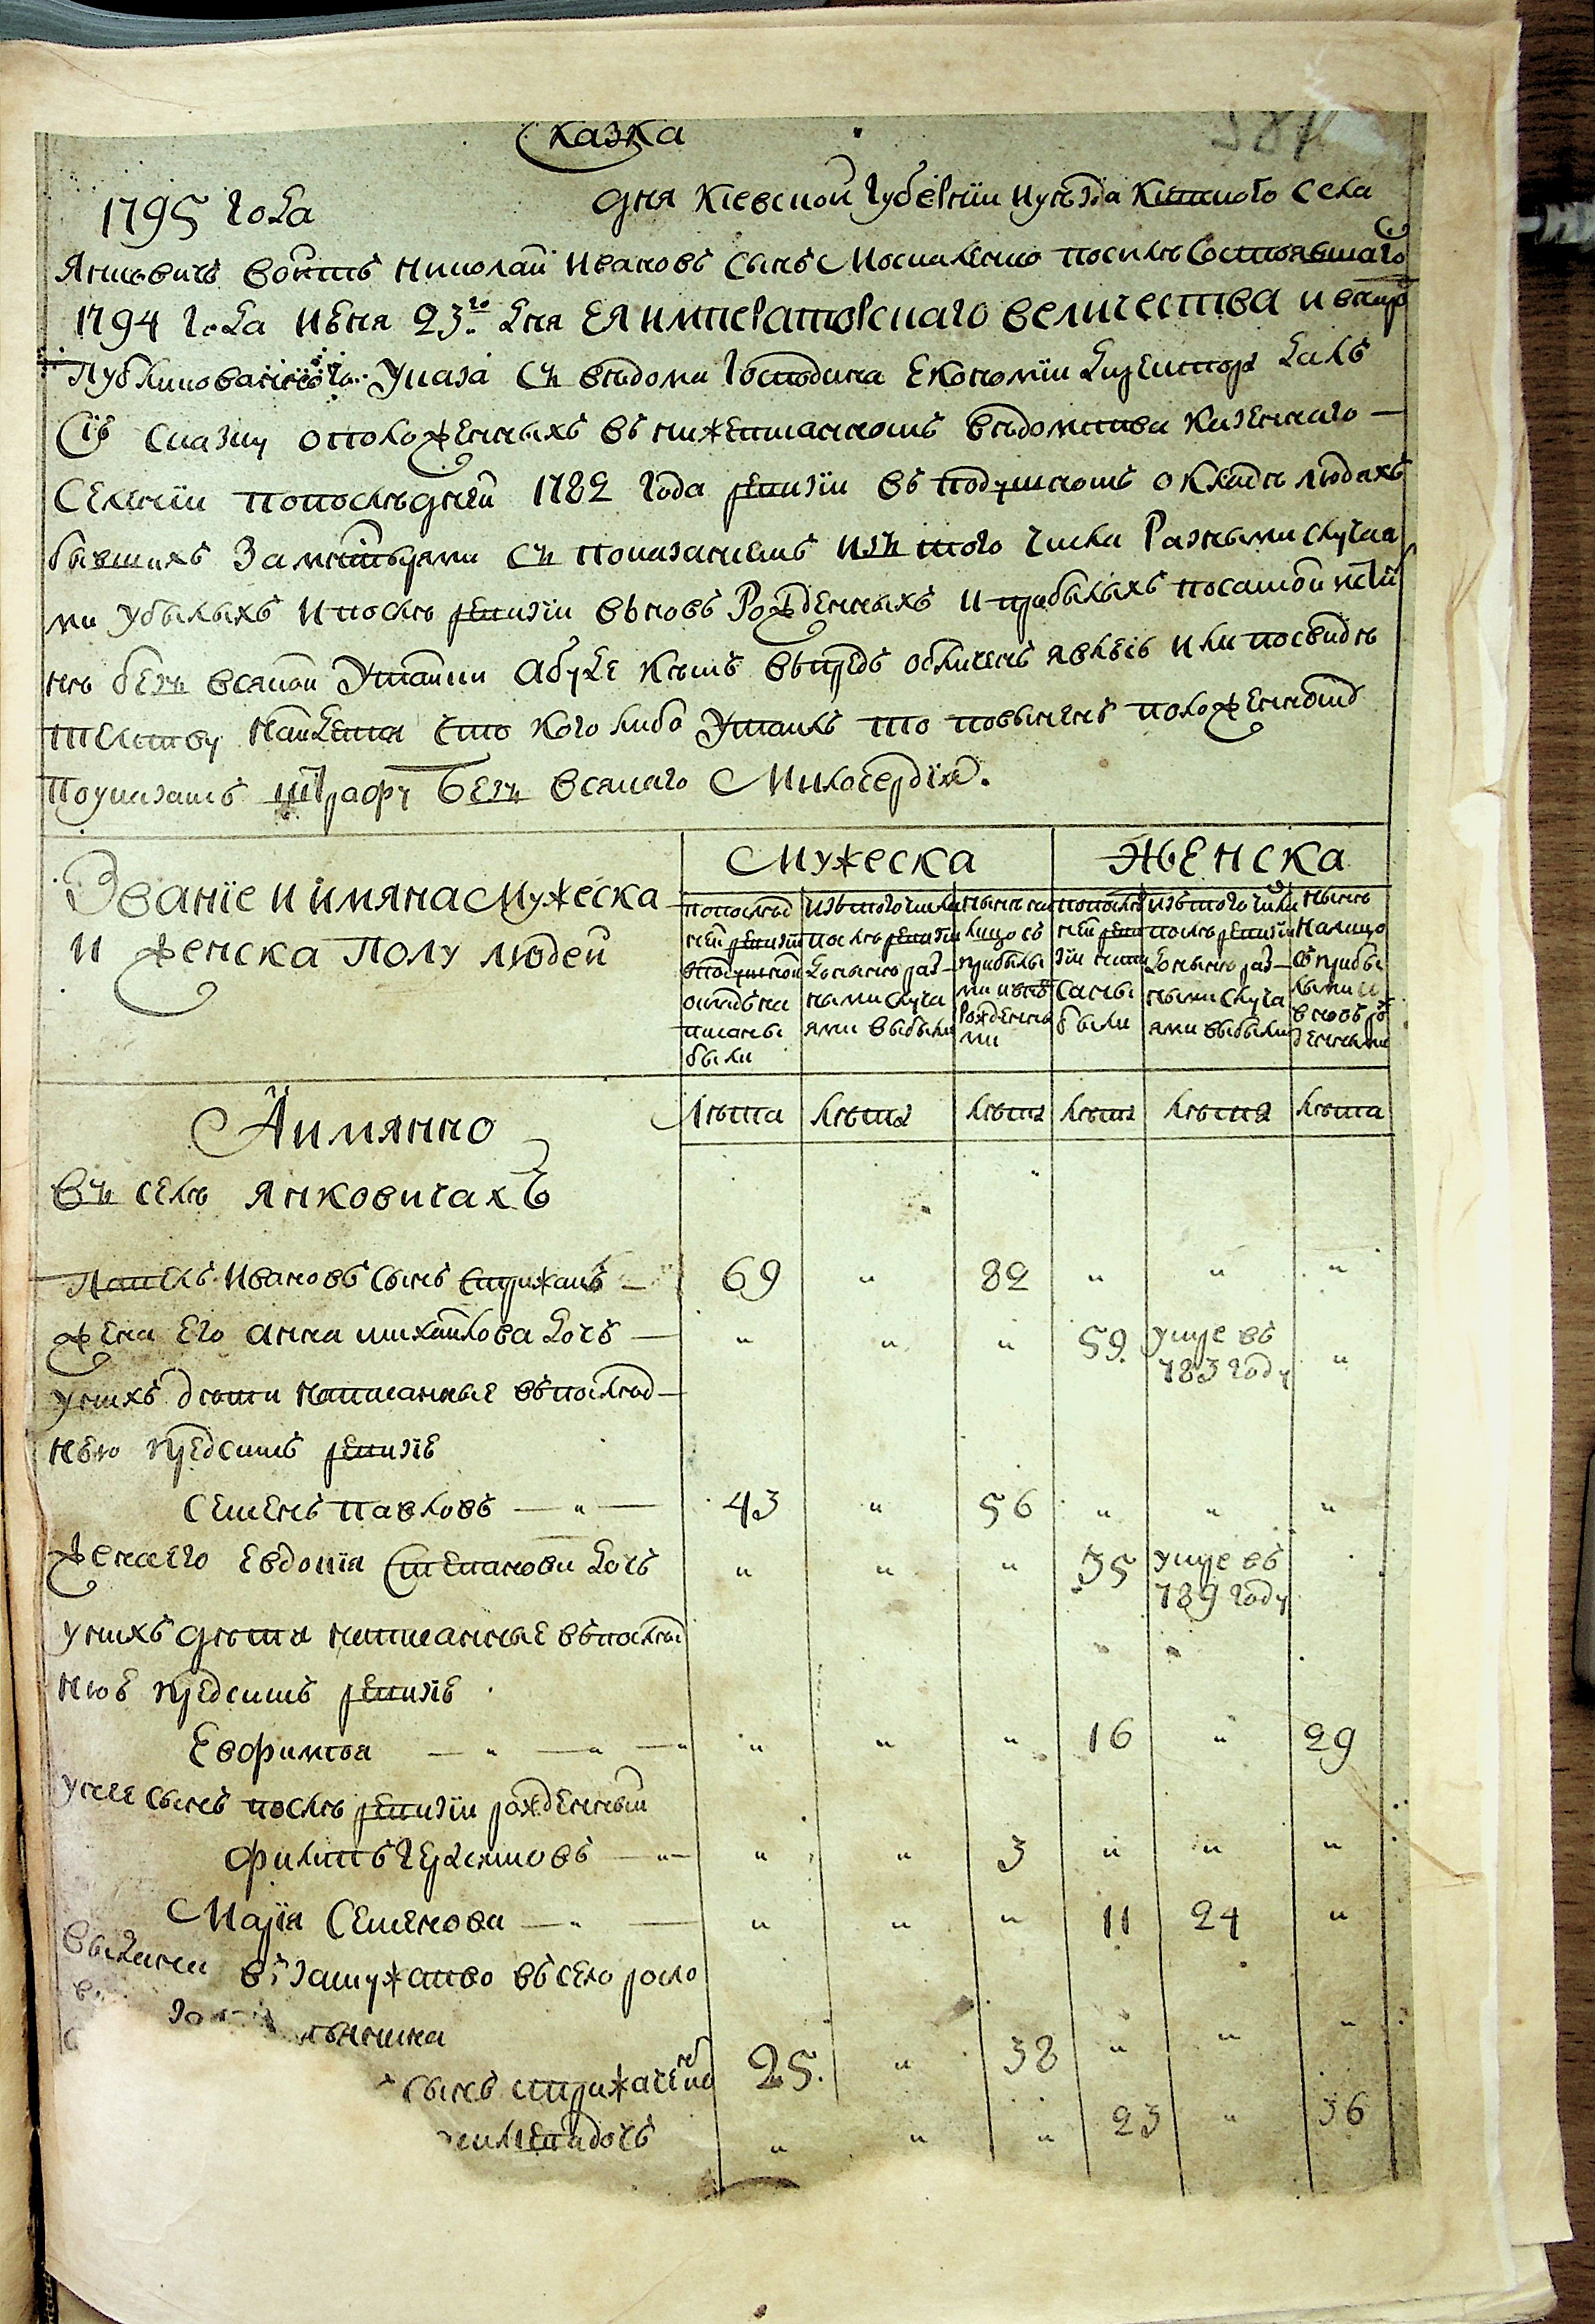 Сказка
1795 года дня Кіевской губерніи и уѣзда Кіевского села
Янковичъ войтъ Николай Ивановъ сынъ Москаленко посилѣ состоявшаго
1794 года июня 23го дня ея императорскаго величества и всюду
публикованного указа съ вѣдома господина економіи директора далъ
сію сказку о положенныхъ въ нижеписанномъ вѣдомства казенного
селеніи по последней 1782 года ревизіи въ подушномъ окладѣ людяхъ
бывшихъ за монастырями съ показаніемъ изъ того числа разными случая
ми убылыхъ и послѣ ревизіи вновь рожденныхъ и прибылыхъ по самой исти
нѣ безъ всякой утайки а буде кѣмъ впредь обличенъ явлюсь или по свидѣ
тельству найдется что кого либо утаилъ то повиненъ положенному
по указамъ штрафу безъ всякаго милосердія.
Званіе и имяна мужеска
и женска полу людей
Мужеска
Женска
по послѣд
ней ревизіи
в подушной
окладъ на
писаны
были
изъ того числа
послѣ ревизіи
до нынѣ раз
ными случа
ями выбыли
нынѣ на
лицо съ
прибылы
ми и вновь
рожденны
ми
по послѣд
ней реви
зіи напи
саны
были
изъ того числа
послѣ ревизіи
до нынѣ раз
ными случа
ями выбыли
нынѣ
на лицо
съ прибы
лыми и
вновь ро
жденными
А имянно
лѣта лѣта лѣта лѣта лѣта лѣта
въ селѣ Янковичахъ
Павелъ Ивановъ сынъ Стрижакъ — 69 " 82 " " "
жена его Анна Михайлова дочь — " " " 59. умре въ 783 году "
у нихъ дѣти написанные въ послѣд
нею предъ симъ ревизіе
Семенъ Павловъ — " — 43 " 56 " " "
жена его Евдокія Степанова дочь " " " 35 умре въ 789 году
у нихъ дѣти написанные въ послѣд
нюю предъ симъ ревизіе
Евфимія — " — " — " " " " 16 " 29
у нее сынъ послѣ ревизіи рожденный
Филипъ Герасимовъ — " — " " 3 " " "
Марія Семенова — " — " " " 11 24 "
выдана въ замужство въ село
сынъ Стрижаченко 25. " 38 " " "
дочь " " " 23 " 36